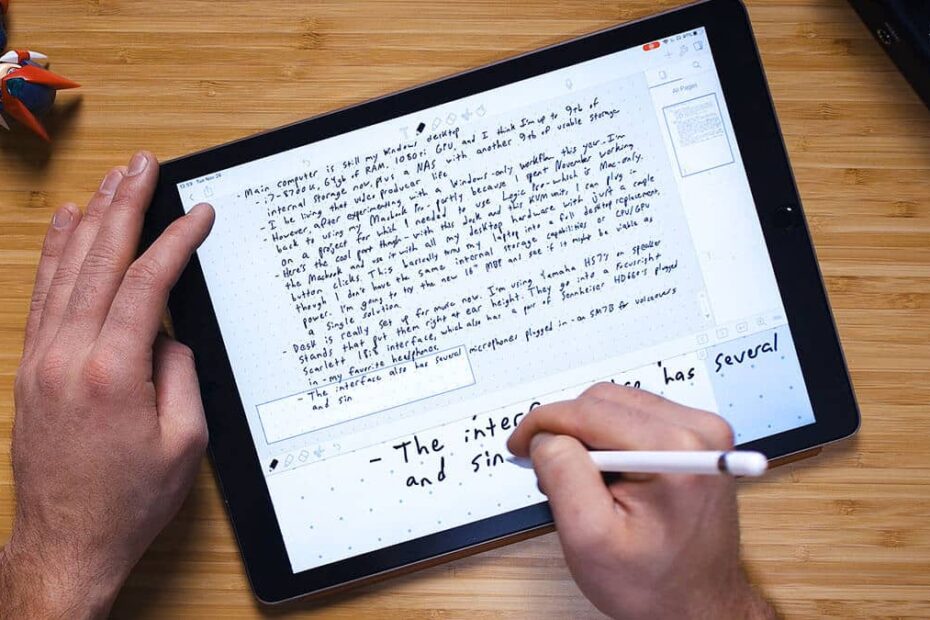 12:59 Tue Nov 26
All Pages
- Main computer is still my windows desktop
- i7-8700K, 64gb of RAM, 1080ti GPU, and I think I'm up to 9tb of
internal storage now, plus a NAS with another 9tb of usable storage
- I be living that video producer life
- However, after experimenting with a Windows-only workflow this year, I'm
back to using my Macbook Pro - partly because I spent November working
on a project for which I needed to use Logic Pro - which is Mac-only.
- Here's the cool part though - with this dock and this KVM unit, I can plug in
the Macbook and use it with all my desktop hardware with just a cable
button clicks. This basically turns my laptop into a full desktop replacement,
though I don't have the same internal storage capabilities or CPU/GPU
power. I'm going to try the new 16" MBP and see if it might be viable as
a single solution.
- Desk is really set up for music now. I'm using Yamaha HS7's on speaker
stands that put them right at ear height. They go into a Focusright
Scarlett 18i8 interface, which also has a pair of Sennheiser HD660s plugged
in - my favorite headphones.
- The interface also has several microphones plugged in - an SM7B for voiceovers
and sin
- The interf has several
and sin